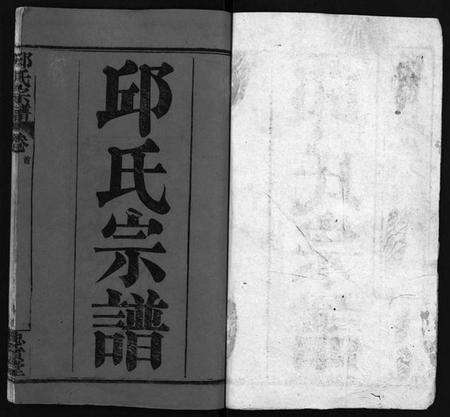 邱氏宗譜
邱氏宗譜 卷首